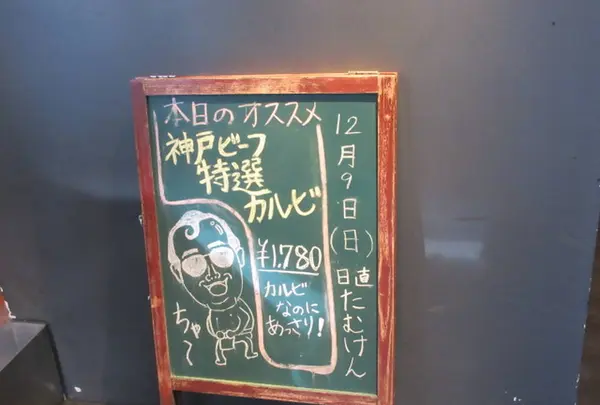 本日のオススメ
神戸ビーフ
特選
カルビ
¥1,780
カルビ
なのに
あっさり!
ちゃ～
12月9日(日)
日直
たむけん